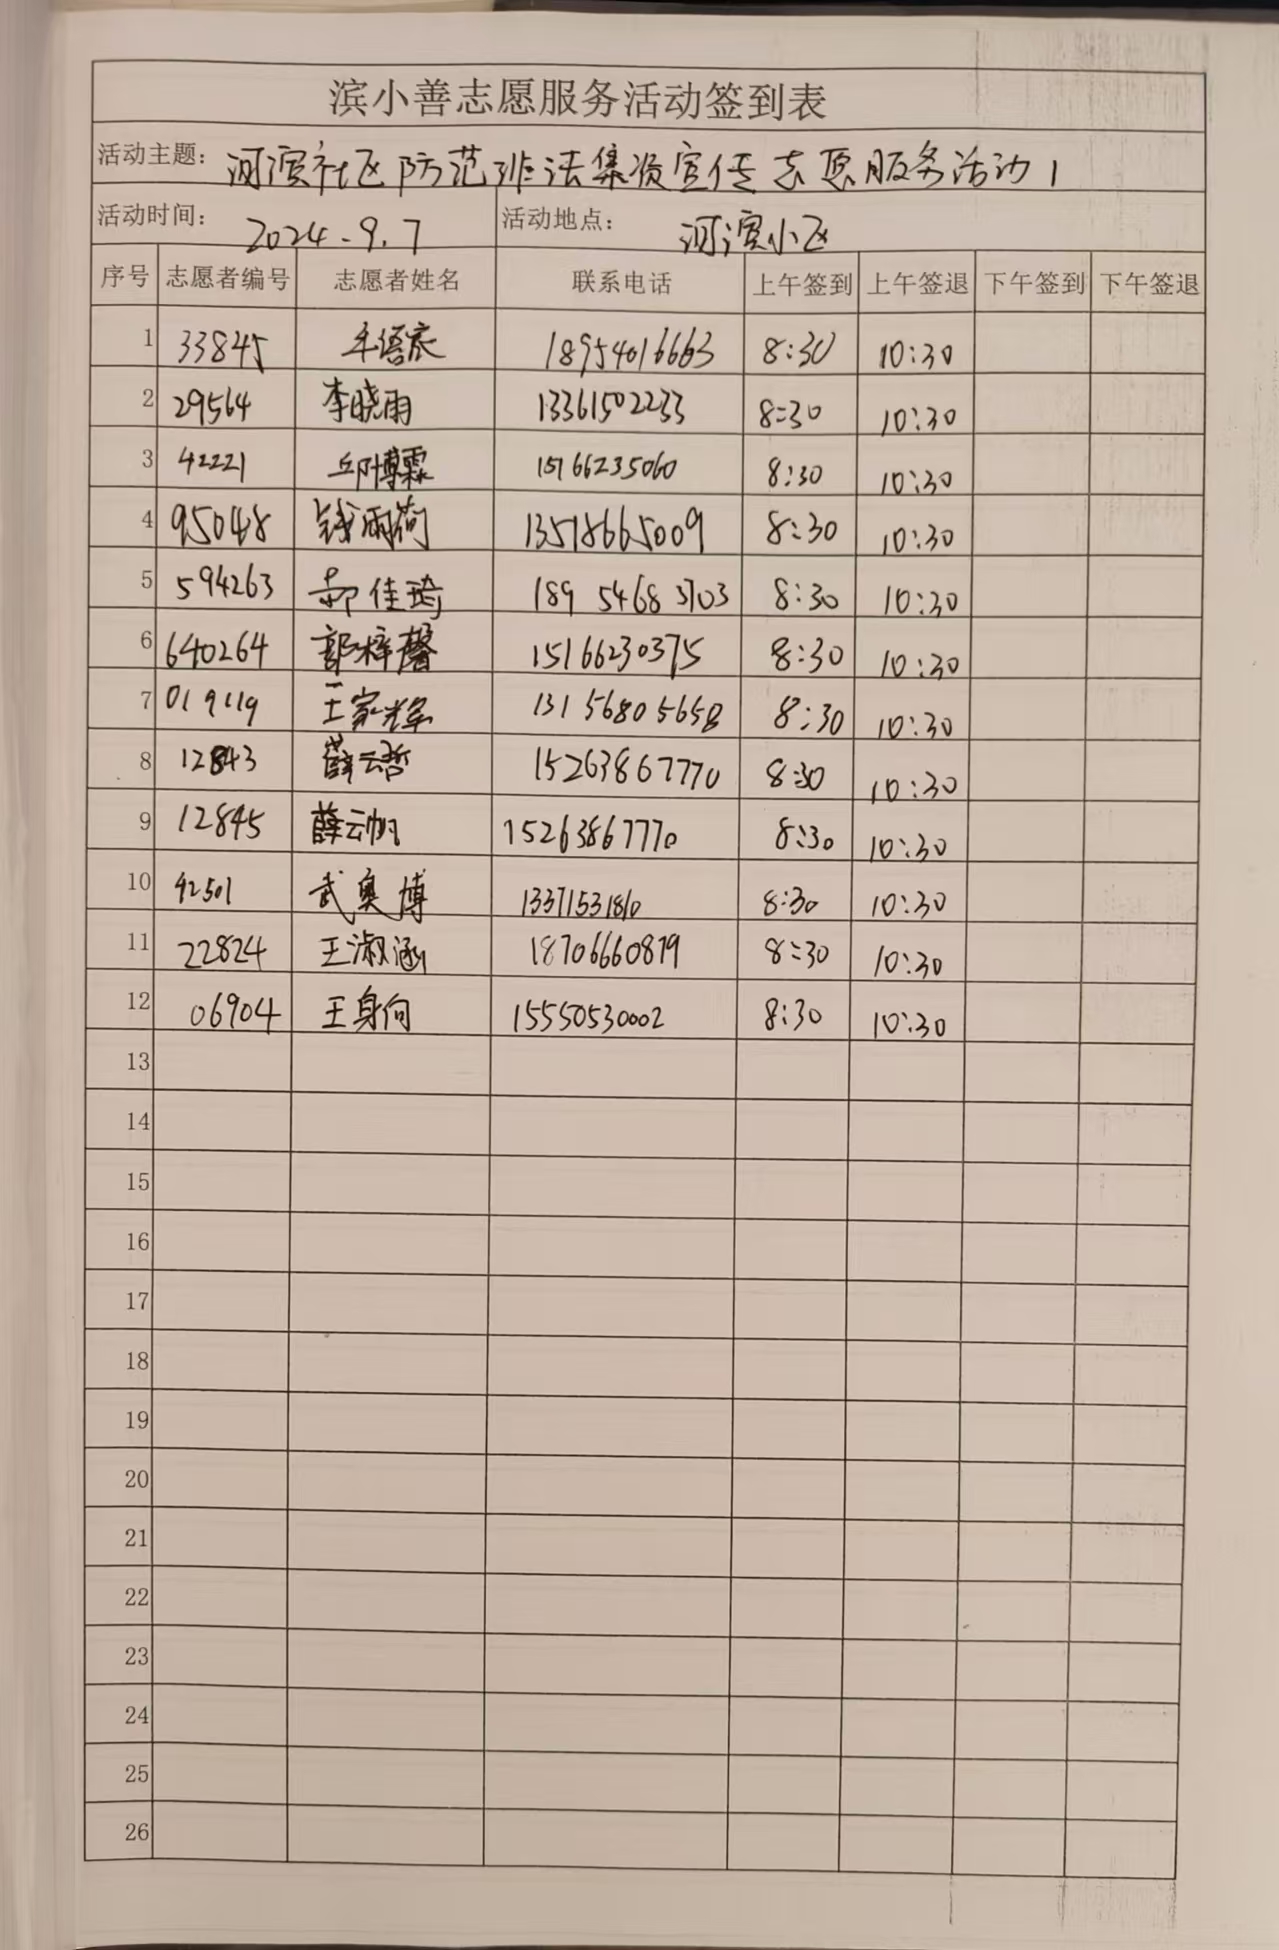 滨小善志愿服务活动签到表
活动主题：河滨社区防范非法集资宣传志愿服务活动1
活动时间：2024.9.7 活动地点：河滨小区
序号 志愿者编号 志愿者姓名 联系电话 上午签到 上午签退 下午签到 下午签退
1 33845 18954016663 8:30 10:30
2 29564 李晓雨 13361502233 8:30 10:30
3 42221 邱博霖 15166235060 8:30 10:30
4 95048 钱雨荷 13518665009 8:30 10:30
5 594263 郝佳琦 189 5468 3703 8:30 10:30
6 640264 郭梓馨 15166230375 8:30 10:30
7 019119 王家辉 13156805658 8:30 10:30
8 12843 薛云哲 15263867770 8:30 10:30
9 12845 薛云帆 15263867770 8:30 10:30
10 42501 武奥博 13371531810 8:30 10:30
11 22824 王淑涵 18706660819 8:30 10:30
12 06904 王身向 15550530002 8:30 10:30
13
14
15
16
17
18
19
20
21
22
23
24
25
26